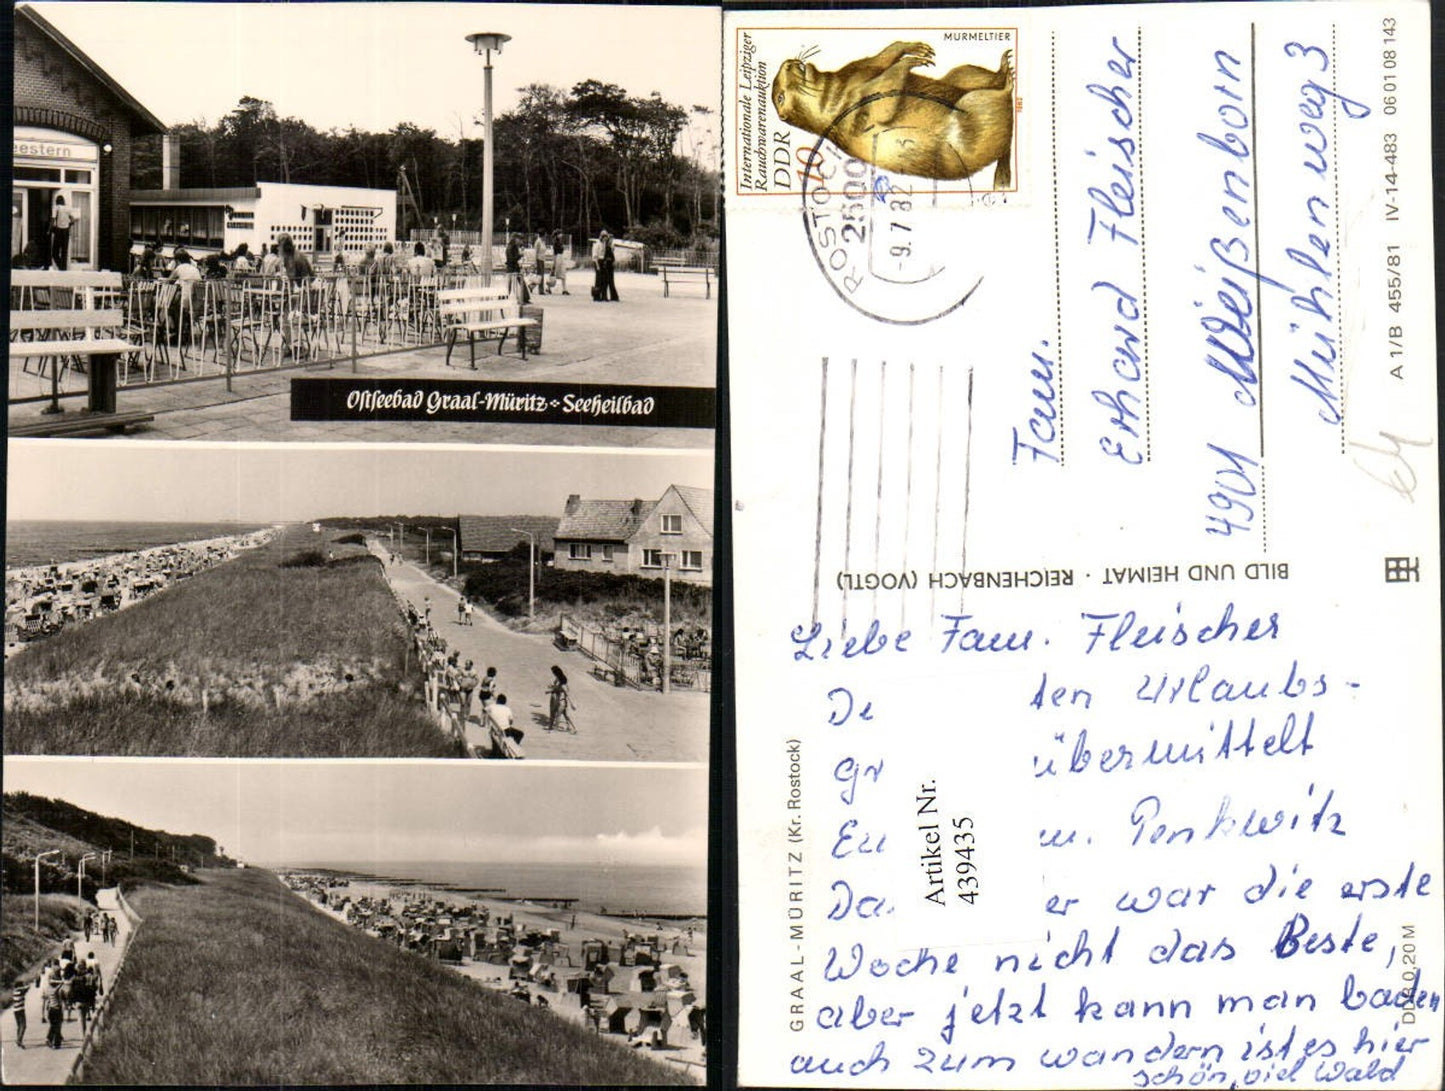 eestern
Ostseebad Graal-Müritz ✣ Seeheilbad
Internationale Leipziger
Rauchwarenauktion
DDR
10
MURMELTIER
1982
ROSTOCK
2500
-9.7.82
Fam.
Erhard Fleischer
4901 Weißenborn
Mühlenweg 3
A 1/B 455/81 IV-14-483 06 01 08 143
BILD UND HEIMAT · REICHENBACH (VOGTL)
GRAAL-MÜRITZ (Kr. Rostock)
DDR 0,20 M
Artikel Nr.
439435
Liebe Fam. Fleischer
De ten Urlaubs-
gr übermittelt
Eu m. Penkwitz
Da. er war die erste
Woche nicht das Beste,
aber jetzt kann man baden
auch zum wandern ist es hier
schön, viel Wald